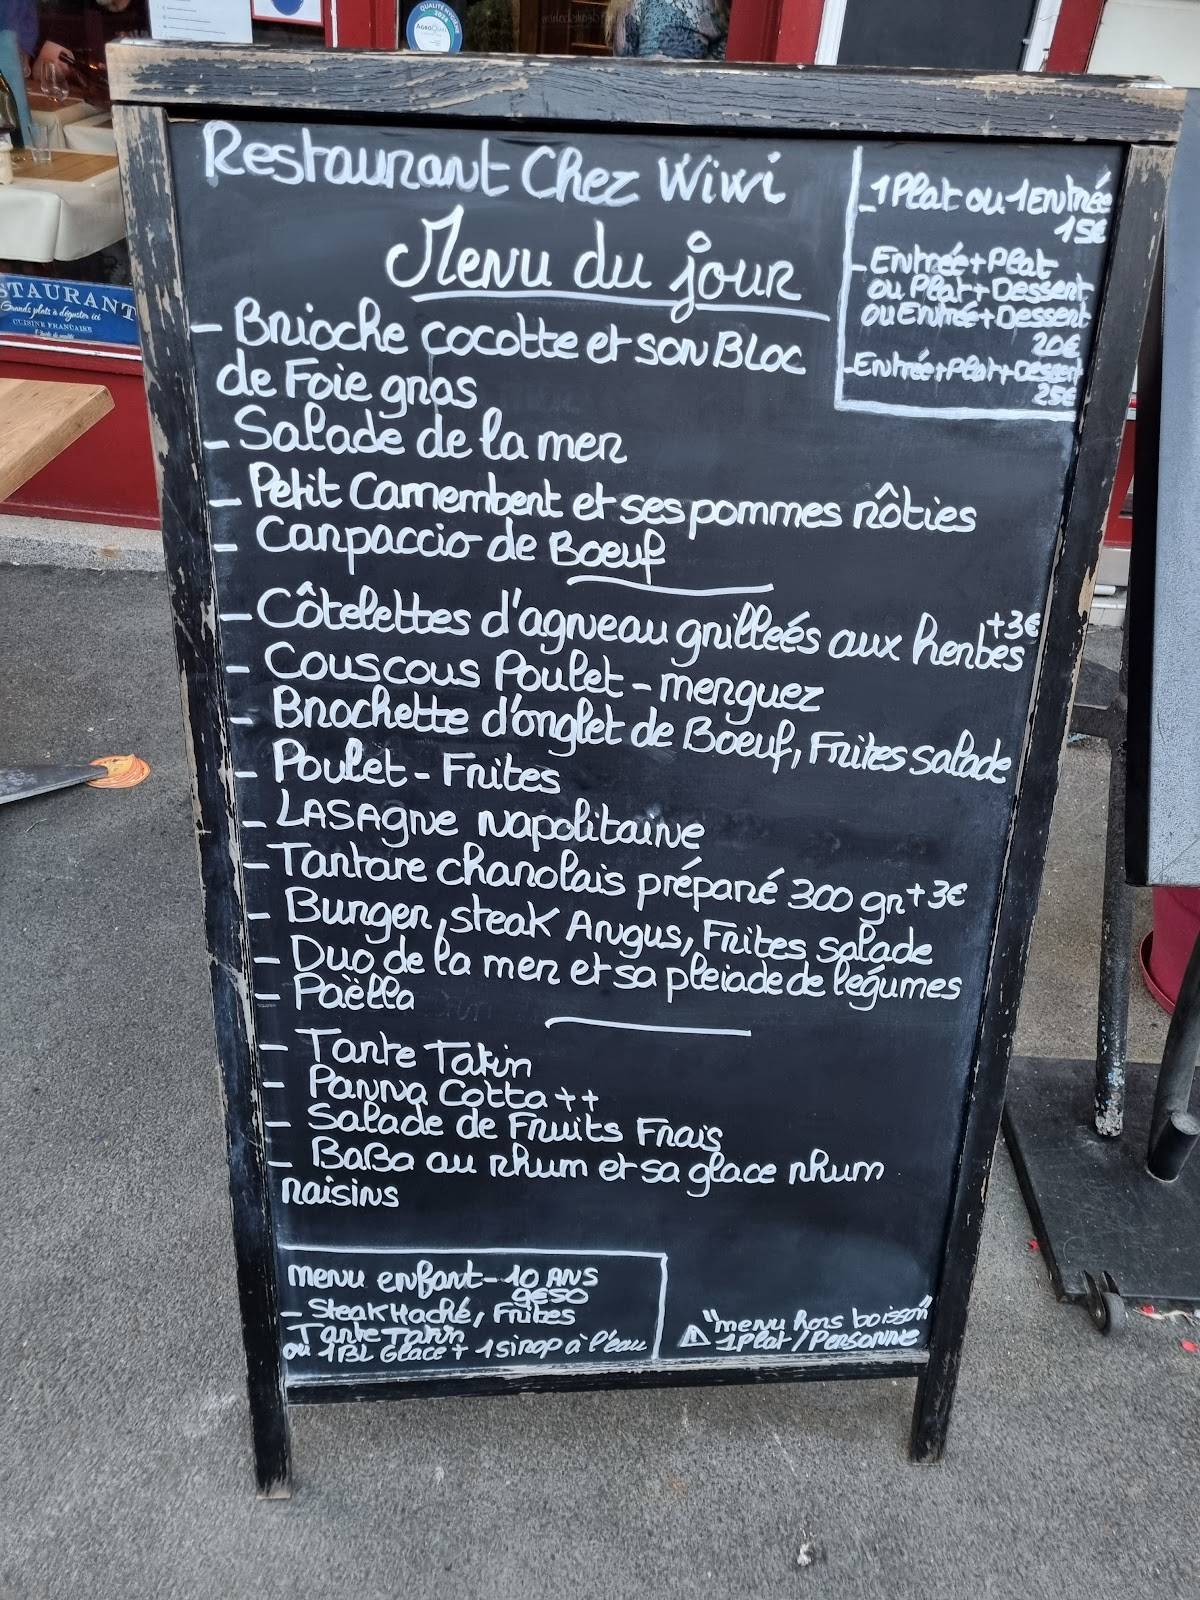 QUALITÉ HYGIÈNE
STAURANT
Grands plats à déguster ici
CUISINE FRANÇAISE
Restaurant Chez Wiwi
Menu du jour
- 1 Plat ou 1 Entrée
15€
- Entrée + Plat
ou Plat + Dessert
ou Entrée + Dessert
20€
- Entrée + Plat + Dessert
25€
- Brioche cocotte et son Bloc
de Foie gras
- Salade de la mer
- Petit Camembert et ses pommes rôties
- Carpaccio de Boeuf
- Côtelettes d'agneau grilleés aux herbes +3€
- Couscous Poulet - merguez
- Brochette d'onglet de Boeuf, Frites salade
- Poulet - Frites
- LASAgne Napolitaine
- Tartare charolais préparé 300 gr +3€
- Burger, steak Angus, Frites salade
- Duo de la mer et sa pleiade de légumes
- Paëlla
- Tarte Tatin
- Panna Cotta ++
- Salade de Fruits Frais
- BaBa au rhum et sa glace rhum
raisins
menu enfant - 10 ANS
9€50
- Steak Haché, Frites
Tarte Tatin
ou 1 BL Glace + 1 sirop à l'eau
"menu hors boisson"
⚠ 1 Plat / Personne